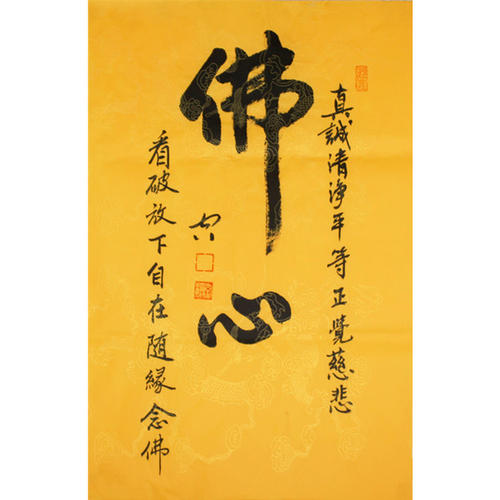 真誠清淨平等正覺慈悲
佛心
看破放下自在隨緣念佛